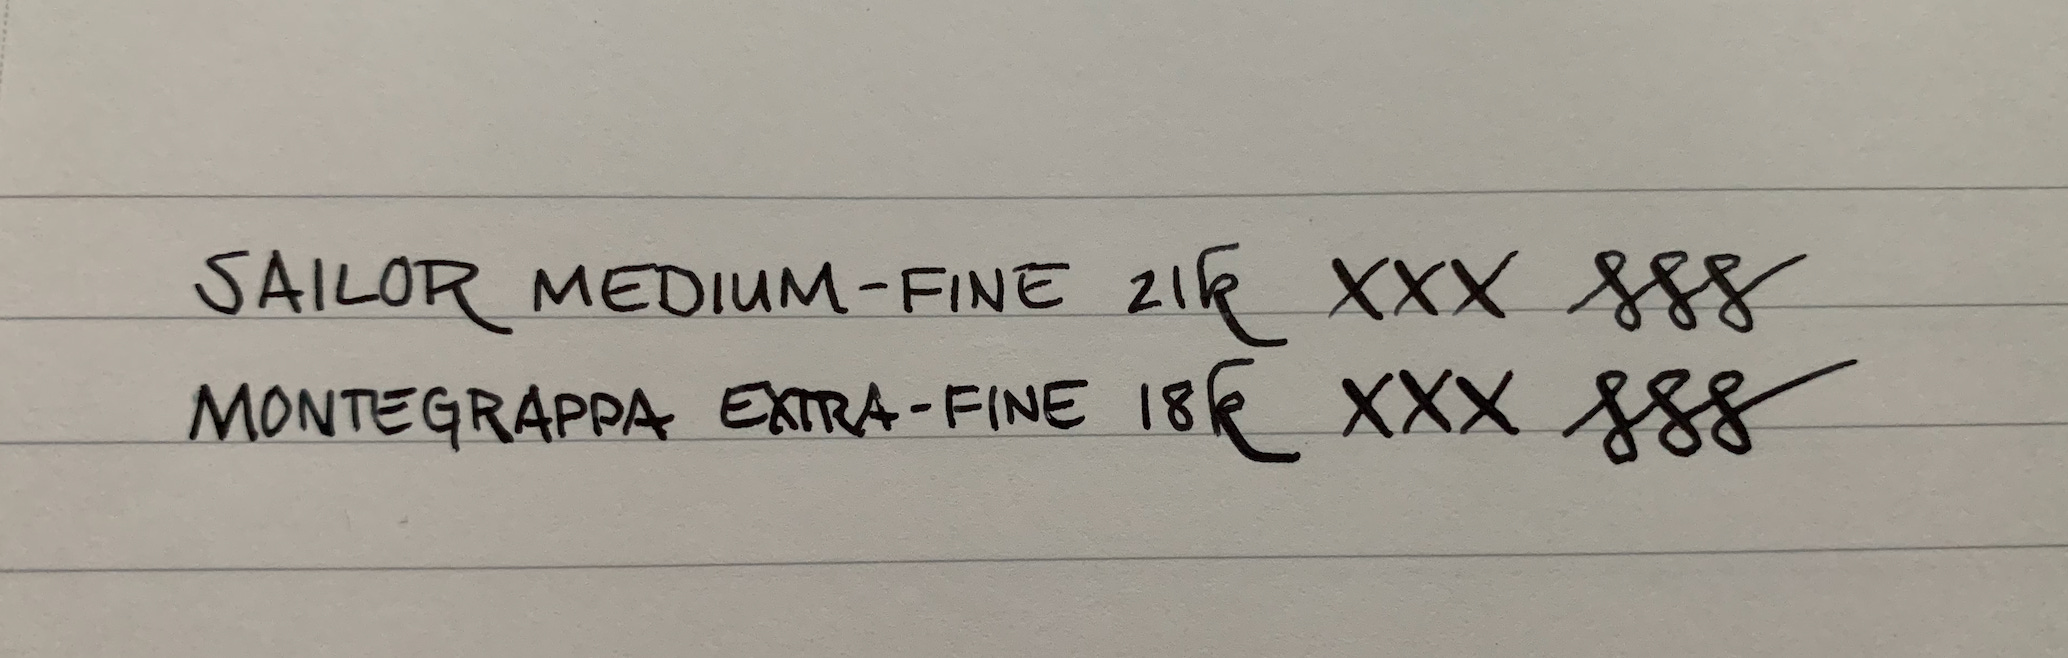 SAILOR MEDIUM-FINE 21k XXX 888
MONTEGRAPPA EXTRA-FINE 18k XXX 888